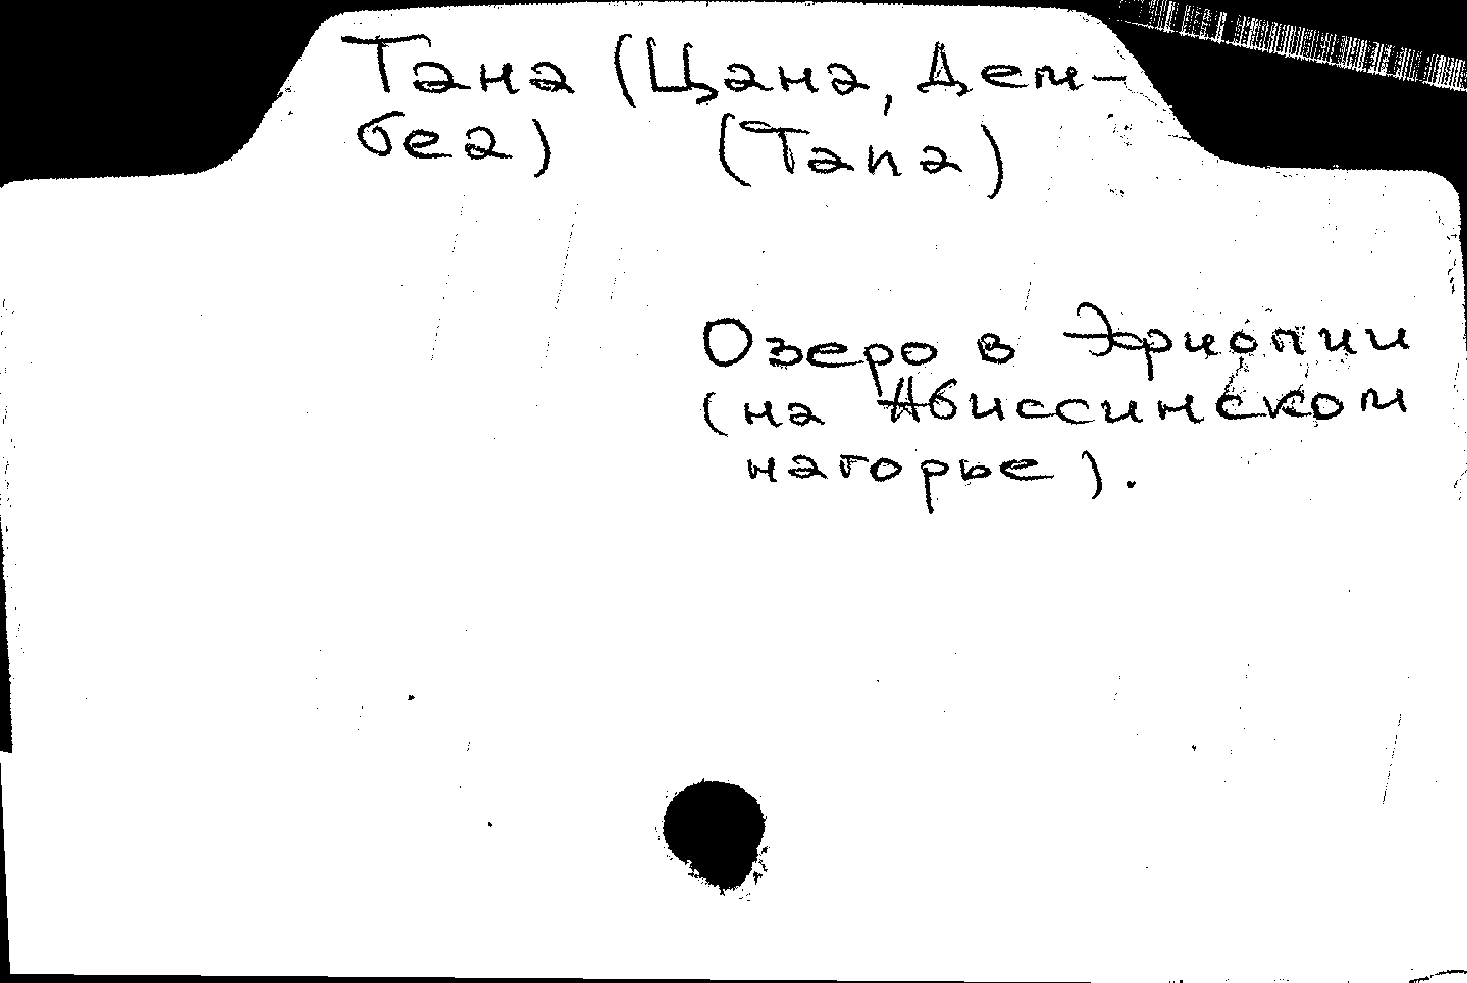 Тана (Цана, Дем-
беа) (Tana)
Озеро в Эфиопии
(на Абиссинском
нагорье).